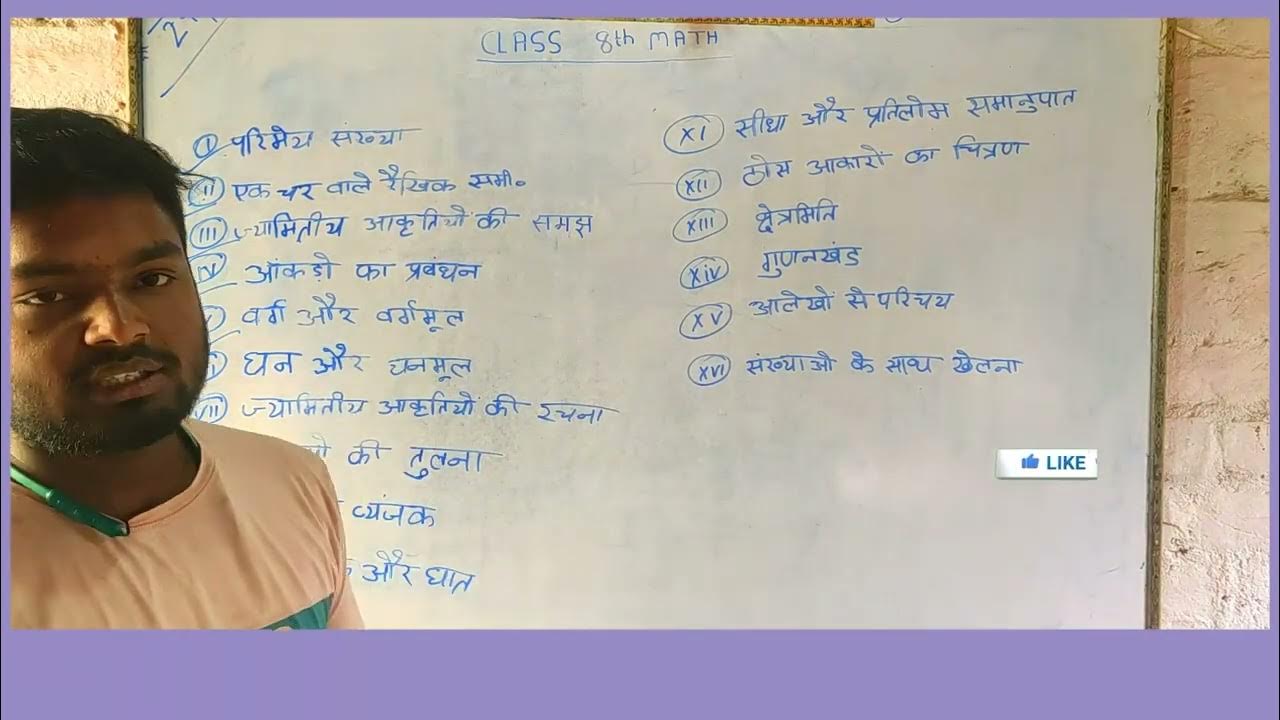 CLASS 8th MATH
I परिमेय संख्या
II एक चर वाले रैखिक समी०
III ज्यामितीय आकृतियों की समझ
IV आंकड़ो का प्रबंधन
वर्ग और वर्गमूल
घन और घनमूल
VII ज्यामितीय आकृतियों की रचना
की तुलना
व्यंजक
और घात
XI सीधा और प्रतिलोम समानुपात
XII ठोस आकारों का चित्रण
XIII क्षेत्रमिति
XIV गुणनखंड
XV आलेखों से परिचय
XVI संख्याओ के साथ खेलना
LIKE